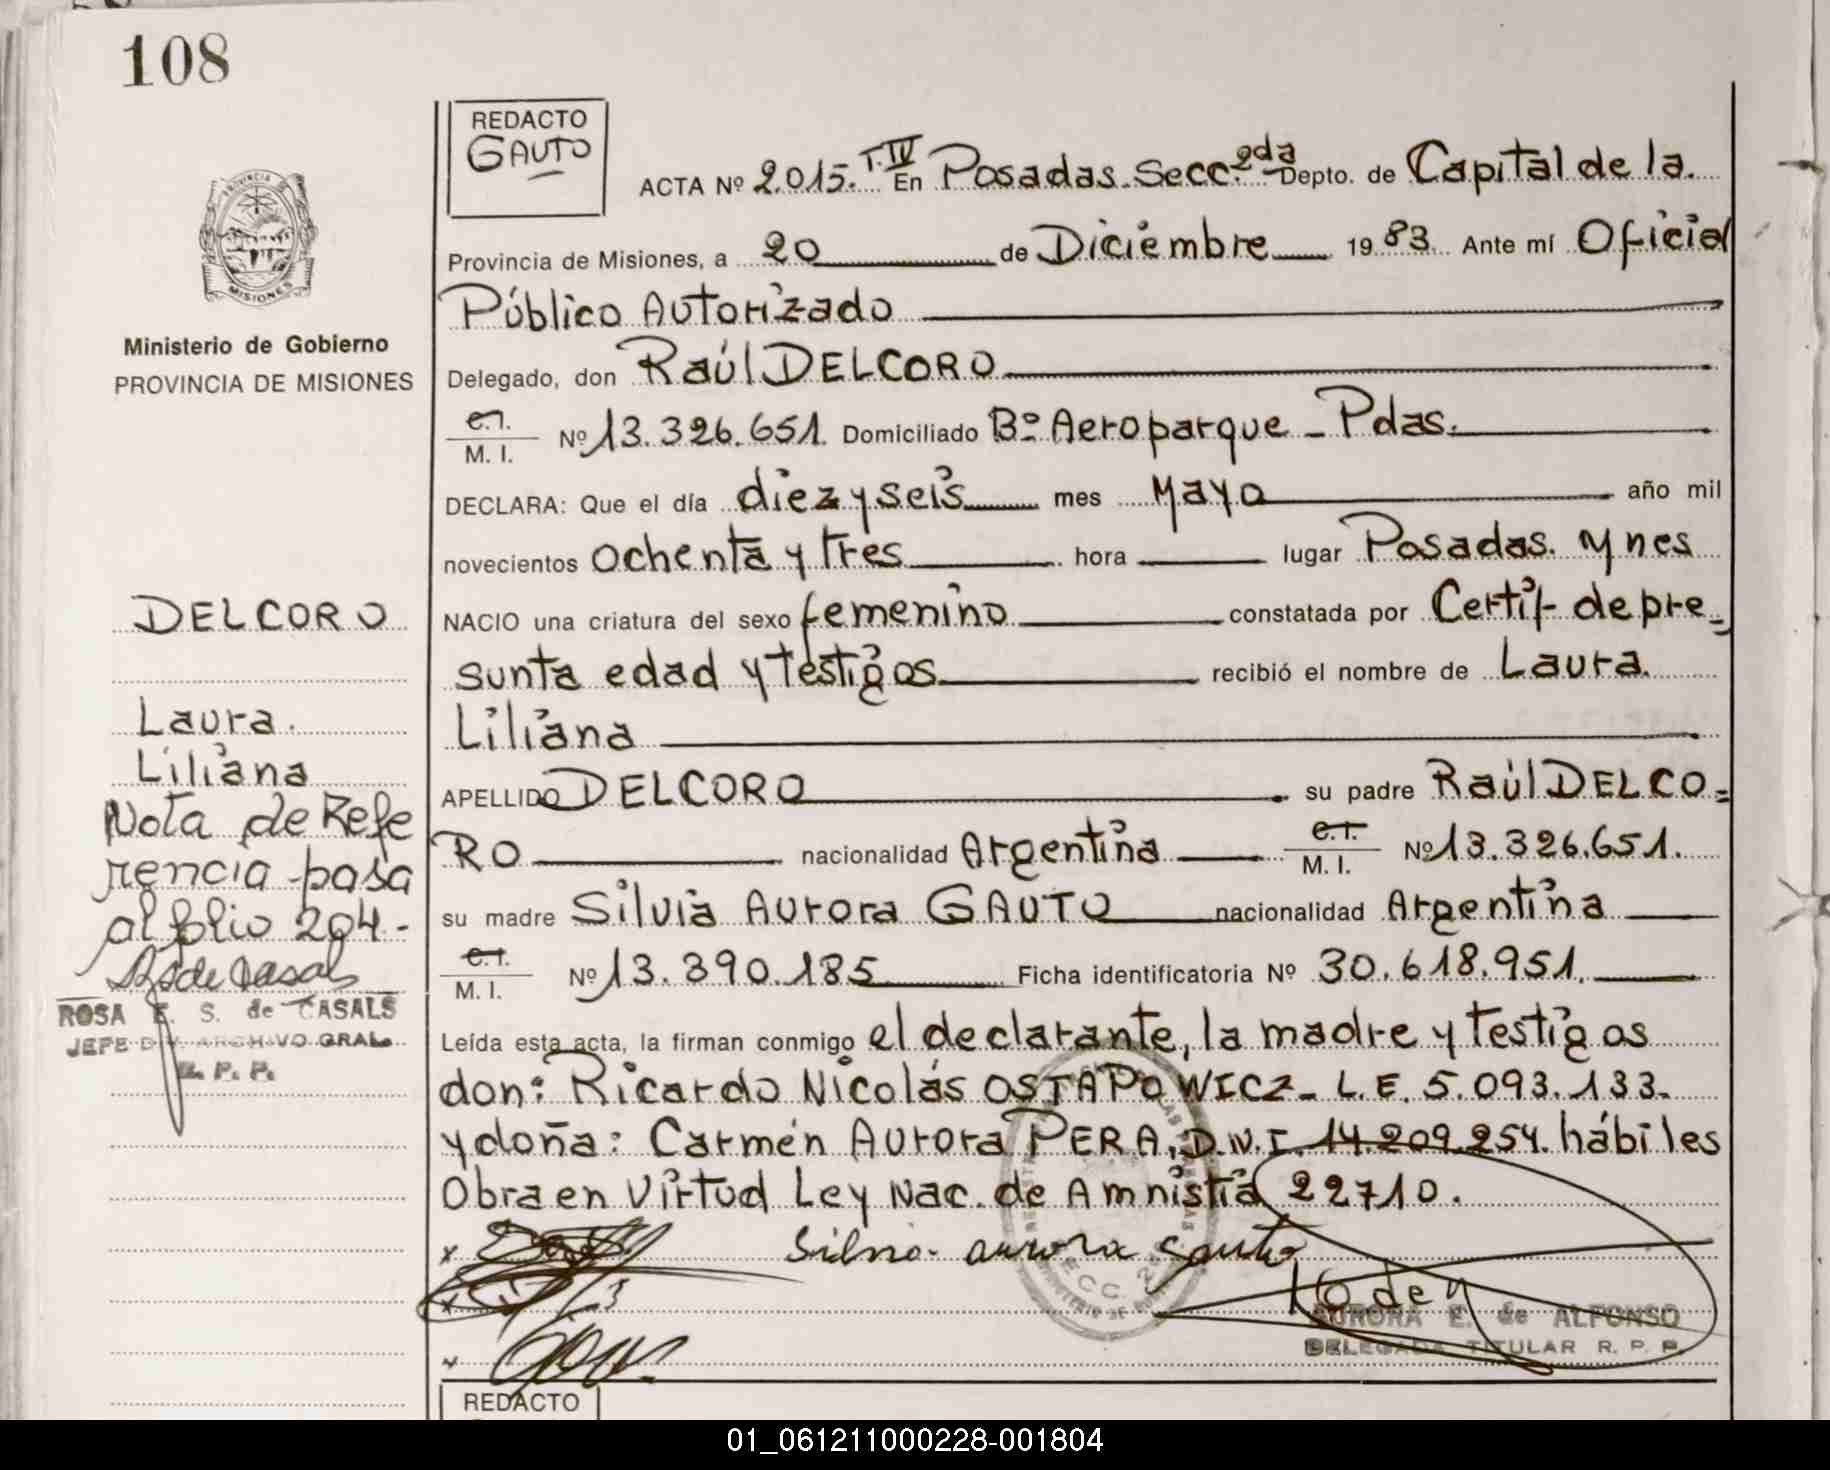 108
REDACTO
GAUTO
ACTA Nº 2.015. T.IV En Posadas. Secc. 2da Depto. de Capital de la.
PROVINCIA DE
MISIONES
Provincia de Misiones, a 20 de Diciembre 1983. Ante mí Oficial
Público Autorizado
Ministerio de Gobierno
PROVINCIA DE MISIONES
Delegado, don Raúl DELCORO
C.I.
M. I. Nº 13.326.651. Domiciliado Bº Aeroparque - Pdas.
DECLARA: Que el día diez y seis mes Mayo año mil
novecientos ochenta y tres hora lugar Posadas. Mnes
DELCORO
NACIO una criatura del sexo femenino constatada por Certif- de pre-
sunta edad y testigos recibió el nombre de Laura.
Laura.
Liliana
Liliana
APELLIDO DELCORO su padre Raúl DELCO=
Nota de Refe
rencia pasa
al folio 204-
RO nacionalidad Argentina C.I.
M. I. Nº 13.326.651.
su madre Silvia Aurora GAUTO nacionalidad Argentina
C.I.
M. I. Nº 13.390.185 Ficha identificatoria Nº 30.618.951.
ROSA E. S. de CASALS
JEFE DIV. ARCHIVO GRAL.
R. P. P.
Leída esta acta, la firman conmigo el declarante, la madre y testigos
don: Ricardo Nicolás OSTAPOWICZ - L.E. 5.093.133.
y doña: Carmen Aurora PERA, D.N.I. 14.209.254. hábiles
Obra en Virtud Ley Nac. de Amnistia 22710.
Silvia aurora Gauto
AURORA E. de ALFONSO
DELEGADA TITULAR R. P. P.
REDACTO
01_061211000228-001804